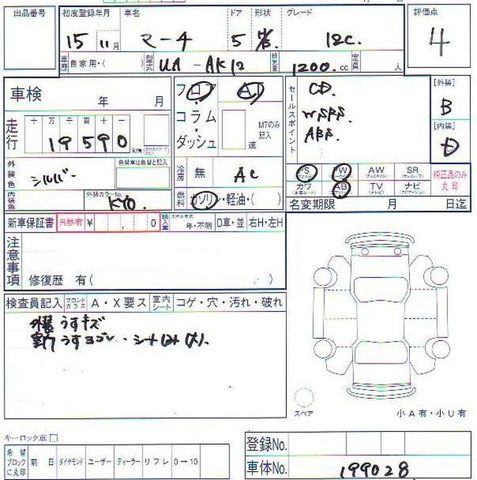 出品番号 初度登録年月 車名 ドア 形状 グレード 評価点
15 11月 マーチ 5 12C. 4
自家用・( ) 型式 UA-AK12 排気量 1200.cc 定員 人
車検 年 月 フロア AT CD. [外装]
走行 十 万 千 百 十 一 コラム・ MTのみ記入 セールスポイント B
19590 km ダッシュ 速 ABS [内装]
D
外装色 シルバー 色替車は色替と記入 冷房 無 AC PS PW AW SR 純正品のみ丸印
内装色 外装カラーNo. KY0 燃料 ガソリン・軽油・( ) カワ AB TV ナビ
名変期限 月 日迄
新車保証書 R券有 ¥ , 0 輸入車 モデル年式 年・不明 D車・並 右H・左H
注意事項
修復歴 有( )
検査員記入 フロントガラス A・X要ス 室内シート コゲ・穴・汚れ・破れ
外装 うすキズ
うすヨゴレ・シート
スペア
小A有・小U有
キーロック車
希望ブロックに丸印 前日 ダイヤモンド ユーザー ディーラー リフレ 0→10
登録No.
車体No. 199028